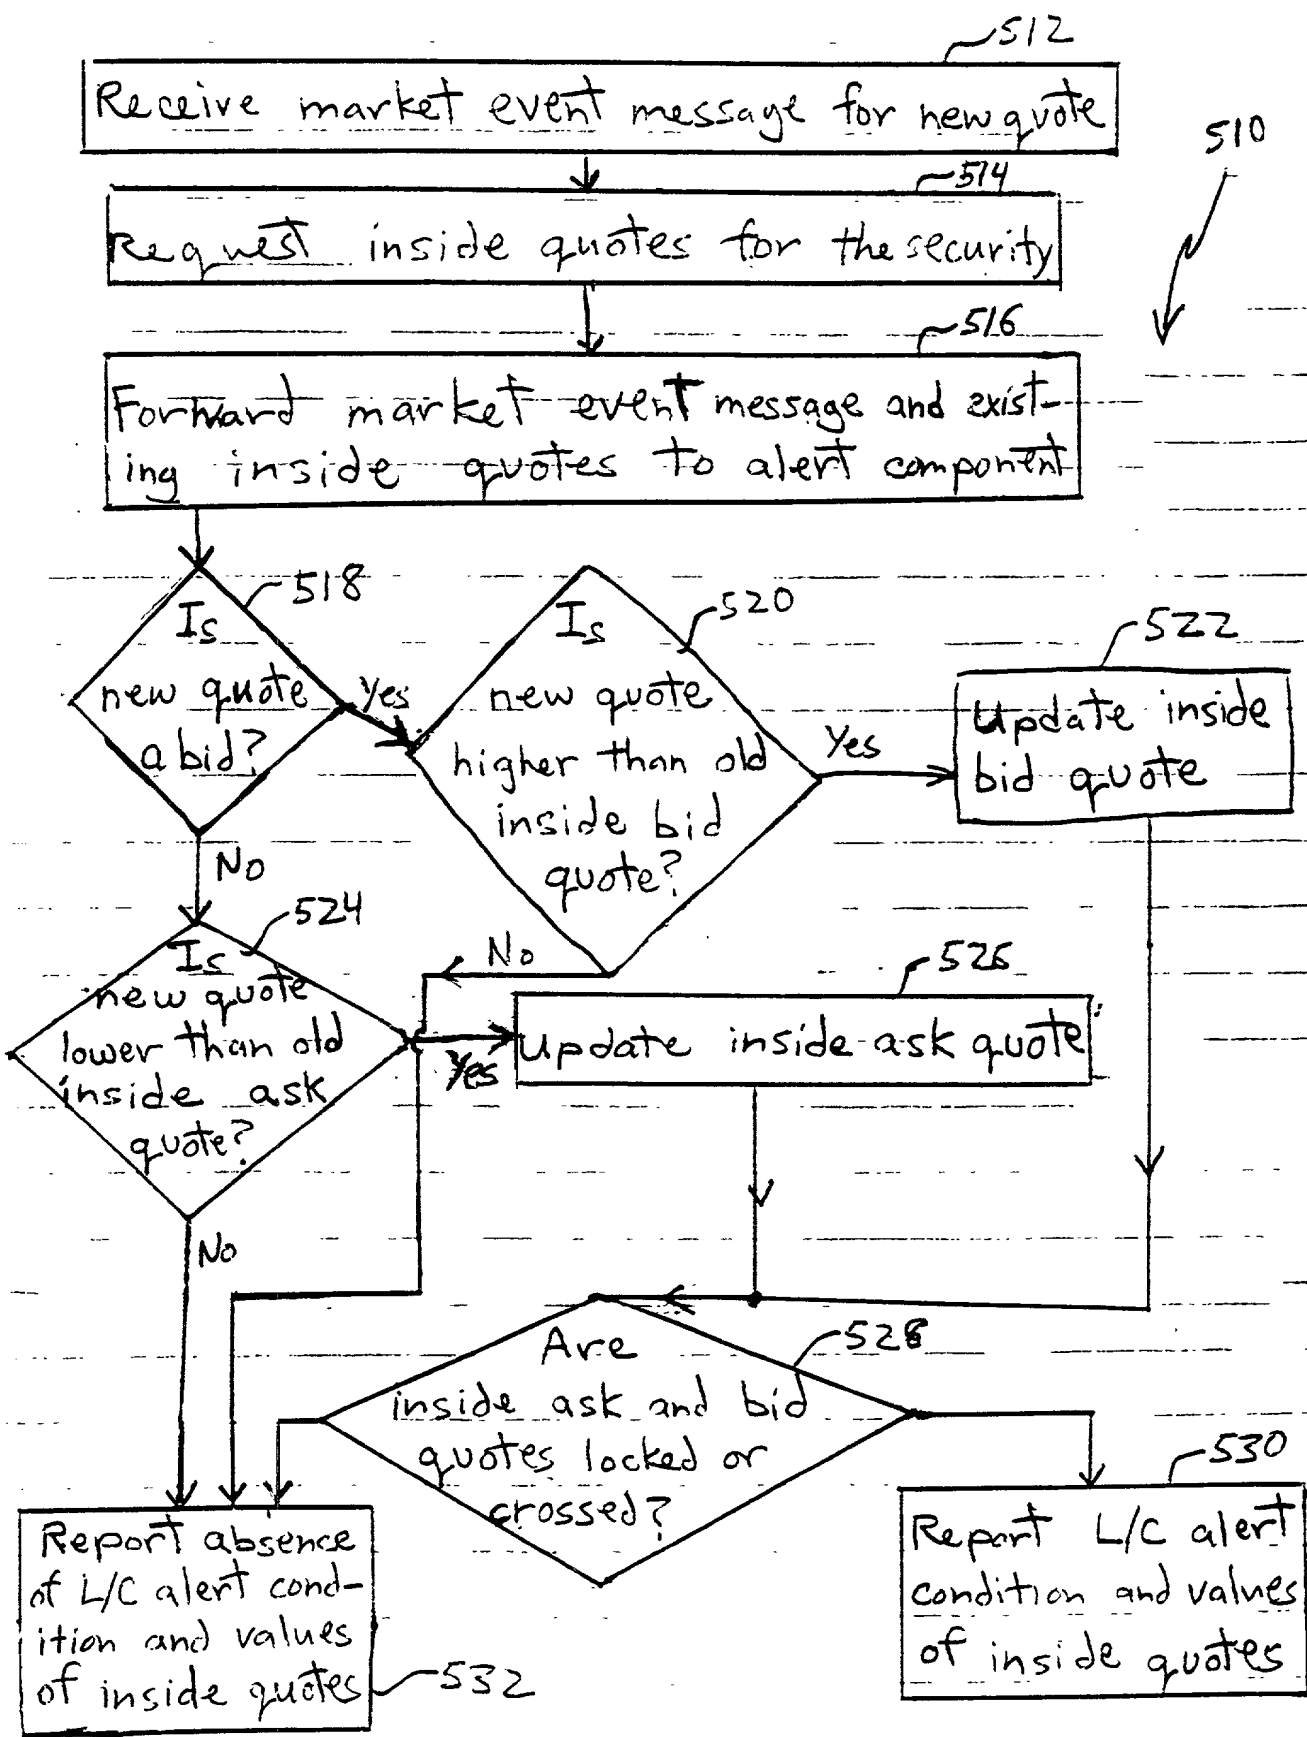 512
Receive market event message for new quote
510
514
Request inside quotes for the security
516
Forward market event message and exist-
ing inside quotes to alert component
518
Is
new quote
a bid?
Yes
520
Is
new quote
higher than old
inside bid
quote?
Yes
522
Update inside
bid quote
No
No
524
Is
new quote
lower than old
inside ask
quote?
Yes
526
Update inside ask quote
No
528
Are
inside ask and bid
quotes locked or
crossed?
530
Report L/C alert
condition and values
of inside quotes
Report absence
of L/C alert cond-
ition and values
of inside quotes
532